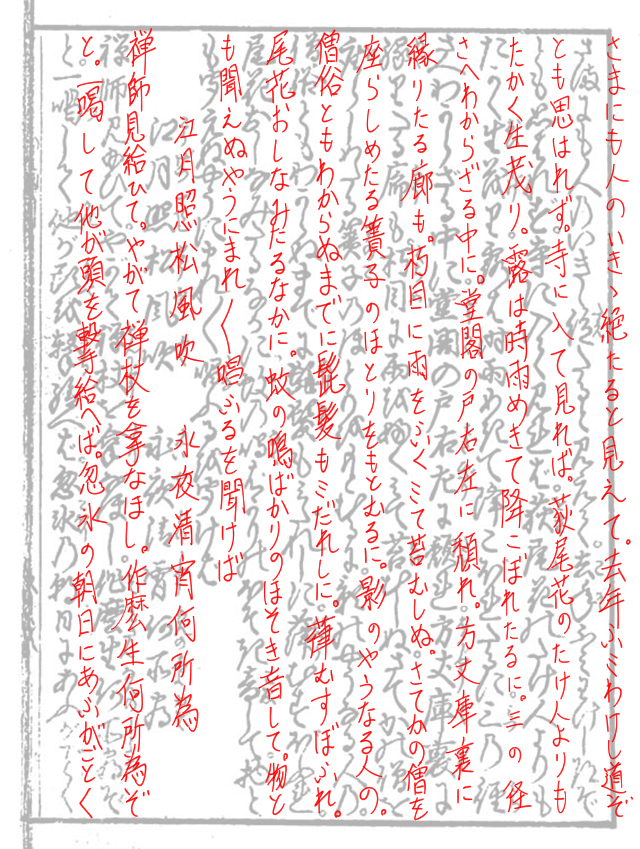 さまにも人のいきゝ絶たると見えて。去年ふみわけし道ぞ
とも思はれず。寺に入て見れば。荻尾花のたけ人よりも
たかく生茂り。露は時雨めきて降こぼれたるに。三の径
さへわからざる中に。堂閣の戸右左に頽れ。方丈庫裏に
縁りたる廊も。朽目に雨をふくみて苔むしぬ。さてかの僧を
座らしめたる簀子のほとりをもとむるに。影のやうなる人の。
僧俗ともわからぬまでに髭髪もみだれしに。葎むすぼふれ。
尾花おしなみたるなかに。蚊の鳴ばかりのほそき音して。物と
も聞えぬやうにまれ〳〵唱ふるを聞けば
江月照松風吹 永夜清宵何所為
禅師見給ひて。やがて禅杖を拿なほし。作麼生何所為ぞ
と。一喝して他が頭を撃給へば。忽氷の朝日にあふがごとく